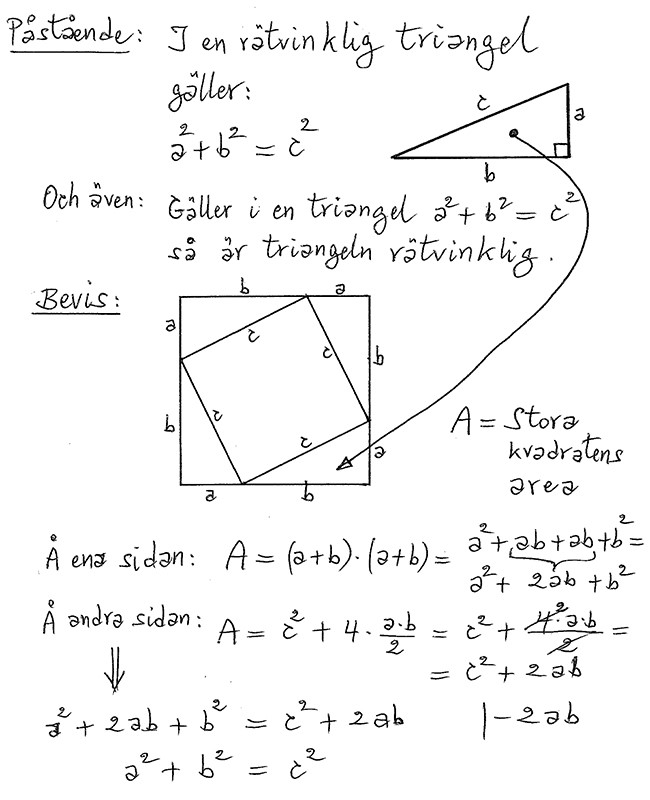 Påstående: I en rätvinklig triangel
gäller:
a² + b² = c²
c
a
b
Och även: Gäller i en triangel a² + b² = c²
så är triangeln rätvinklig.
Bevis:
b a
a
c
c b
b
c
c
a
a b
A = Stora
kvadratens
area
Å ena sidan: A = (a+b)·(a+b) = a² + ab + ab + b² =
a² + 2ab + b²
Å andra sidan: A = c² + 4 · a·b/2 = c² + 4² a·b/2 =
= c² + 2ab
⇓
a² + 2ab + b² = c² + 2ab |−2ab
a² + b² = c²